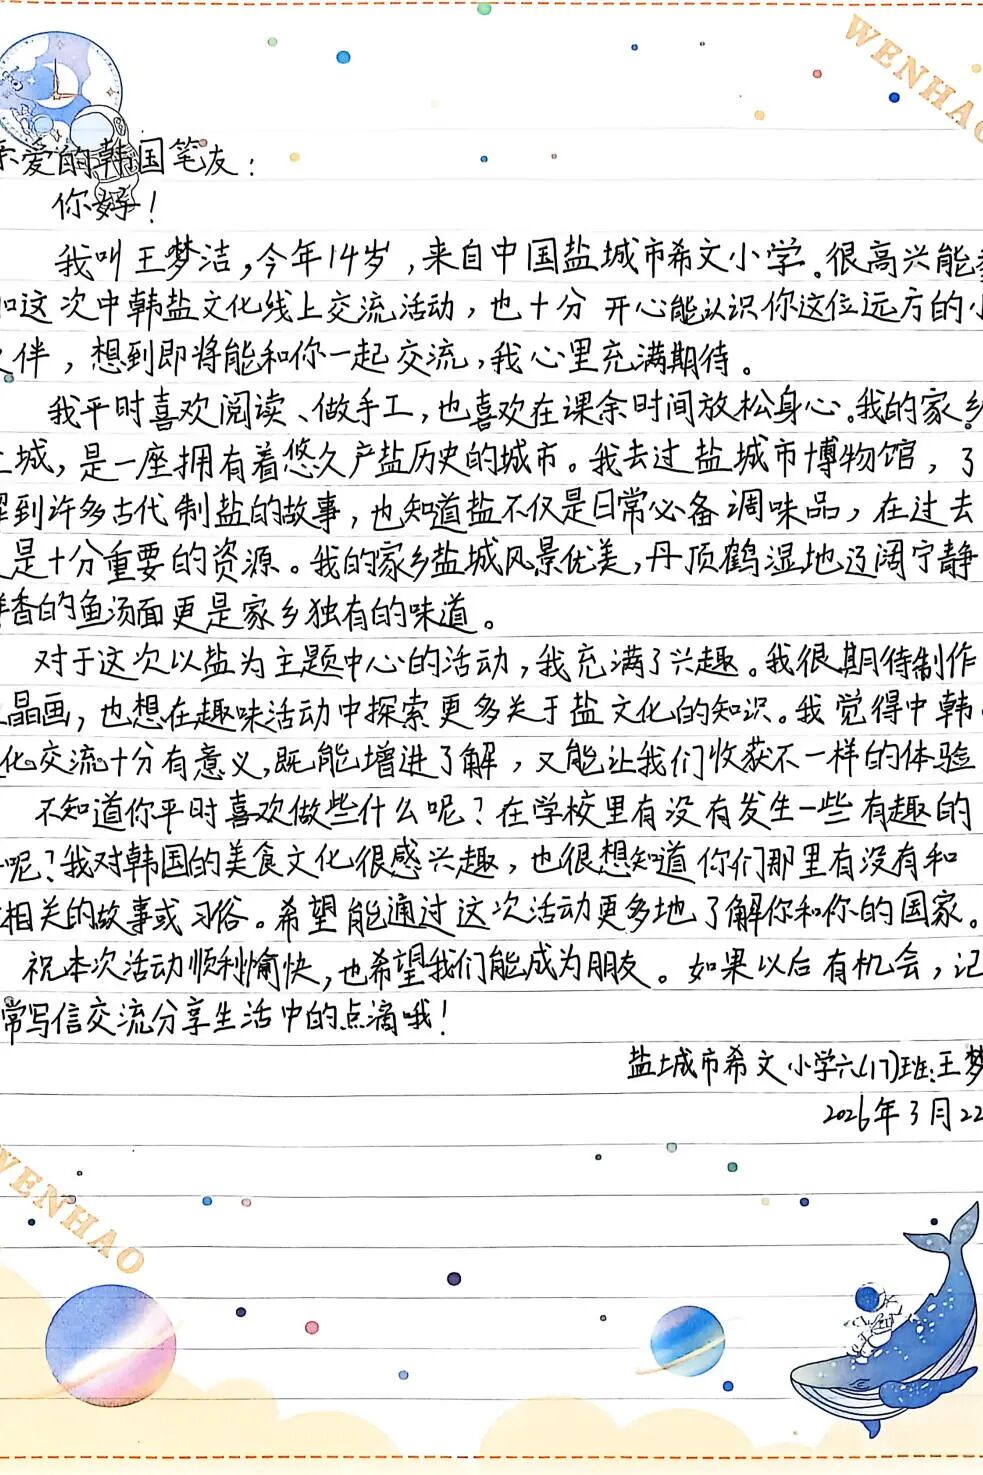 WENHAO
爱的韩国笔友：
你好！
我叫王梦洁，今年14岁，来自中国盐城市希文小学。很高兴能
这次中韩盐文化线上交流活动，也十分开心能认识你这位远方的小
伴，想到即将能和你一起交流，我心里充满期待。
我平时喜欢阅读、做手工，也喜欢在课余时间放松身心。我的家乡
城，是一座拥有着悠久产盐历史的城市。我去过盐城市博物馆，了
到许多古代制盐的故事，也知道盐不仅是日常必备调味品，在过去
是十分重要的资源。我的家乡盐城风景优美，丹顶鹤湿地辽阔宁静
香的鱼汤面更是家乡独有的味道。
对于这次以盐为主题中心的活动，我充满了兴趣。我很期待制作
晶画，也想在趣味活动中探索更多关于盐文化的知识。我觉得中韩
化交流十分有意义，既能增进了解，又能让我们收获不一样的体验
不知道你平时喜欢做些什么呢？在学校里有没有发生一些有趣的
呢？我对韩国的美食文化很感兴趣，也很想知道你们那里有没有和
相关的故事或习俗。希望能通过这次活动更多地了解你和你的国家。
祝本次活动顺利愉快，也希望我们能成为朋友。如果以后有机会，记
常写信交流分享生活中的点滴哦！
盐城市希文小学六(17)班：王梦
2026年3月22
WENHAO